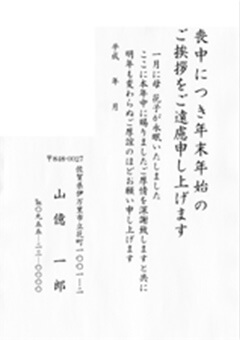 喪中につき年末年始の
ご挨拶をご遠慮申し上げます
一月に母 花子が永眠いたしました
ここに本年中に賜りましたご厚情を深謝致しますと共に
明年も変わらぬご厚誼のほどお願い申し上げます
平成 年 月
〒848-0027
佐賀県伊万里市立花町一〇〇一-二
山億一郎
℡〇九五五-二二-〇〇〇〇